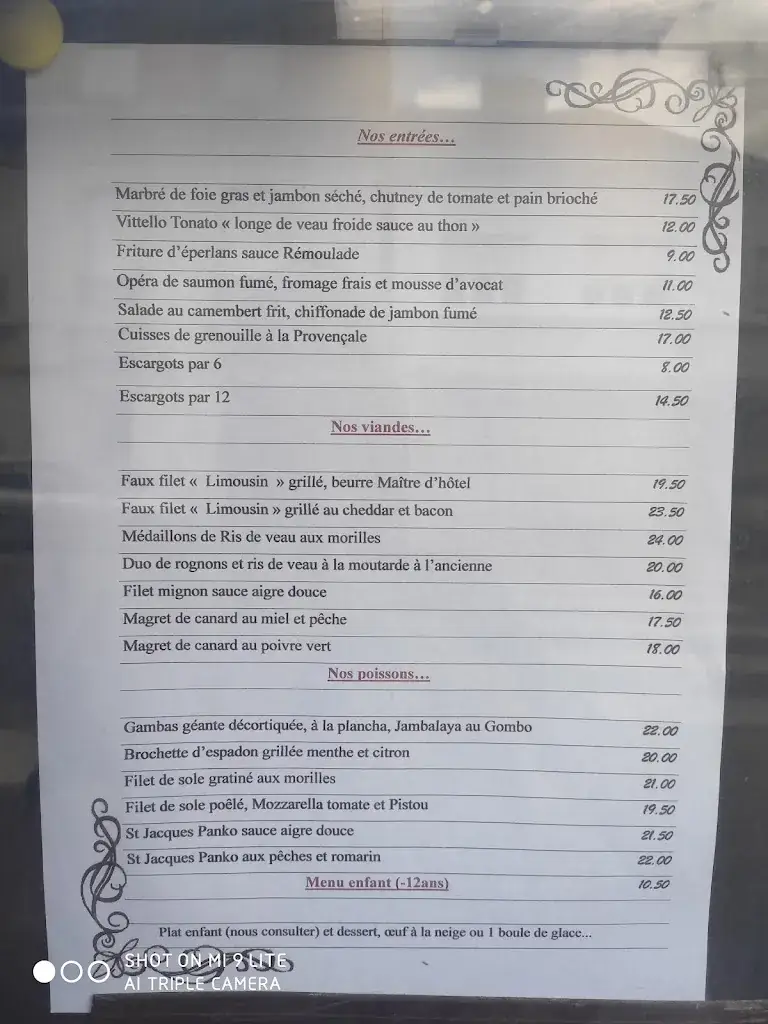 Nos entrées...
Marbré de foie gras et jambon séché, chutney de tomate et pain brioché 17.50
Vittello Tonato « longe de veau froide sauce au thon » 12.00
Friture d'éperlans sauce Rémoulade 9.00
Opéra de saumon fumé, fromage frais et mousse d'avocat 11.00
Salade au camembert frit, chiffonade de jambon fumé 12.50
Cuisses de grenouille à la Provençale 17.00
Escargots par 6 8.00
Escargots par 12 14.50
Nos viandes...
Faux filet « Limousin » grillé, beurre Maître d'hôtel 19.50
Faux filet « Limousin » grillé au cheddar et bacon 23.50
Médaillons de Ris de veau aux morilles 24.00
Duo de rognons et ris de veau à la moutarde à l'ancienne 20.00
Filet mignon sauce aigre douce 16.00
Magret de canard au miel et pêche 17.50
Magret de canard au poivre vert 18.00
Nos poissons...
Gambas géante décortiquée, à la plancha, Jambalaya au Gombo 22.00
Brochette d'espadon grillée menthe et citron 20.00
Filet de sole gratiné aux morilles 21.00
Filet de sole poêlé, Mozzarella tomate et Pistou 19.50
St Jacques Panko sauce aigre douce 21.50
St Jacques Panko aux pêches et romarin 22.00
Menu enfant (-12ans) 10.50
Plat enfant (nous consulter) et dessert, œuf à la neige ou 1 boule de glace...
SHOT ON MI 9 LITE
AI TRIPLE CAMERA